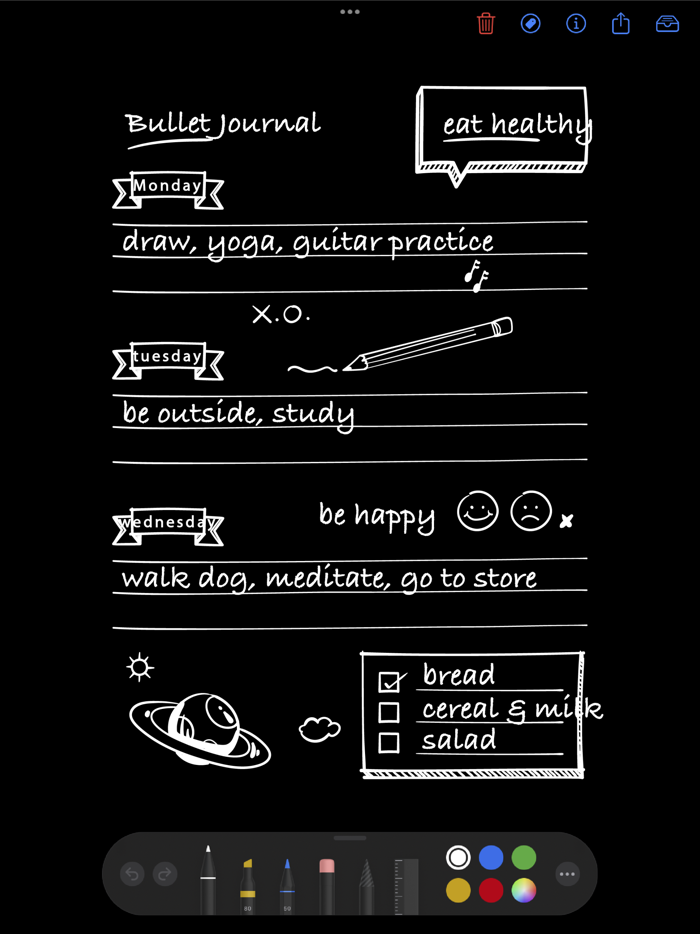 Bullet Journal
eat healthy
Monday
draw, yoga, guitar practice
X.O.
tuesday
be outside, study
wednesday
be happy
walk dog, meditate, go to store
bread
cereal & milk
salad